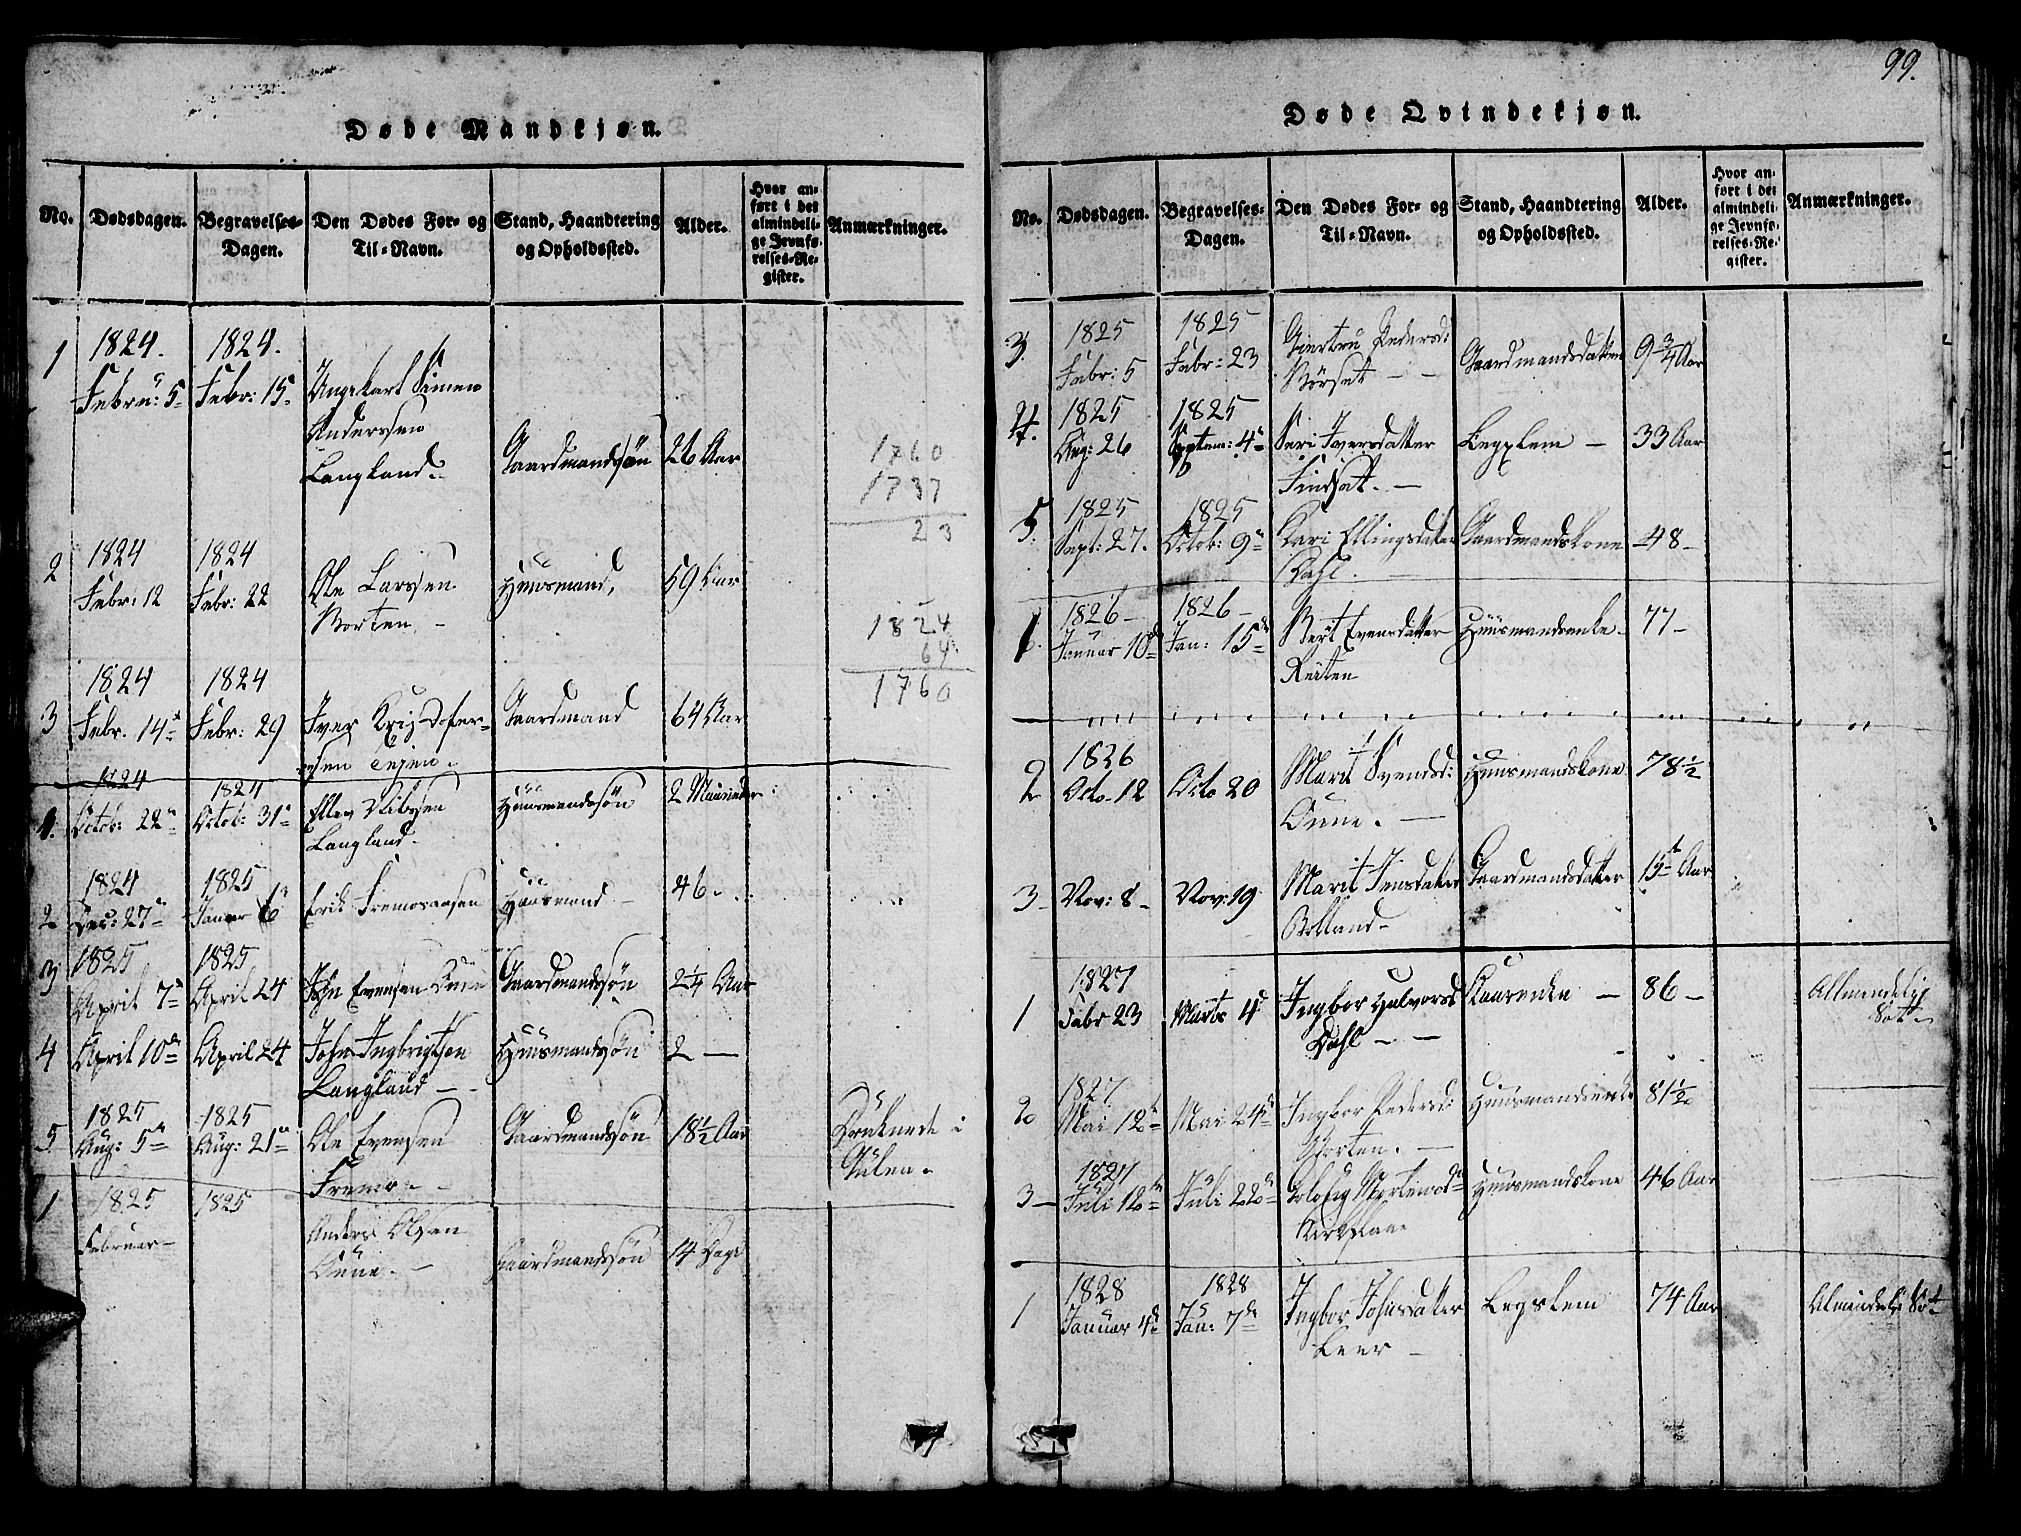 99.
Døde Mandkjøn.
No.
Dødsdagen.
Begravelses-
Dagen.
Den Dødes For- og
Til-Navn.
Stand, Haandtering
og Opholdssted.
Alder.
Hvor an-
ført i det
almindeli-
ge Jevnfø-
relses-Re-
gister.
Anmærkninger.
1
1824.
Febru: 5
1824.
Febr: 15
Ungekarl Simen
Anderssen
Langland
Gaardmandssøn
26 Aar
1760
1737
23
2
1824
Febr: 12
1824
Febr: 22
Ole Larssen
Morten
Huusmand,
59 Aar
1824
64
1760
3
1824
Febr. 14
1824
Febr: 29
Iver Kristofer-
sen
Gaardmand
64 Aar
1.
1824
Octob: 22
1824
Octob: 31
Langland.
Huusmandssøn
2 Maaneder
2
1824
Dec: 27
1825
Januar 6
Erik
Huusmand
46
3
1825
April 7
1825
April 24
John Evensen
Gaardmandssøn
2¼ Aar
4
April 10
April 24
John Ingbrigtsen
Langland
Huusmandssøn
2
5
1825
Aug: 5
1825
Aug: 21
Ole Evensen
Fremo
Gaardmandssøn
18½ Aar
Druknede i
Gulen.
1
1825
Februar
1825
Anders Olsen
Aune
Gaardmandssøn
14 Dage
Døde Qvindekjøn.
No.
Dødsdagen.
Begravelses-
Dagen.
Den Dødes For- og
Til-Navn.
Stand, Haandtering
og Opholdssted.
Alder.
Hvor an-
ført i det
almindeli-
ge Jevnfø-
relses-Re-
gister.
Anmærkninger.
3.
1825
Febr: 5
1825
Febr: 23
Giertru Pedersd:
Børset
Gaardmandsdatter
9¾ Aar
4.
1825
Aug: 26
1825
Septem: 4
Seri Iversdatter
Legslem
33 Aar
5
1825
Sept: 27.
1825
Octob: 9
Kari Ellingsdatter
Dahl.
Gaardmandskone
48
1
1826
Januar 10
1826
Jan: 15
Berit Evensdatter
Reiten
Huusmandsenke
77
2
1826
Octo. 12
Octo 20
Marit Svendsd:
Aune.
Huusmandskone
78½
3
Nov: 8
Nov: 19
Marit Jensdatter
Gaardmandsdatter
15 Aar
1
1827
Febr 23
Marts 4
Ingbor Halvorsd
Dahl
86
Allmindelig
Sot
2
1827
Mai 12
Mai 24
Ingbor Pedersd:
Morten.
Huusmandsenke
81½
3
1827
Juli 12
Juli 22
Kirkflaae
Huusmandskone
46 Aar
1
1828
Januar 4
1828
Jan: 7
Ingbor Johnsdatter
Leer
Legslem
74 Aar
Almindeli: Sot